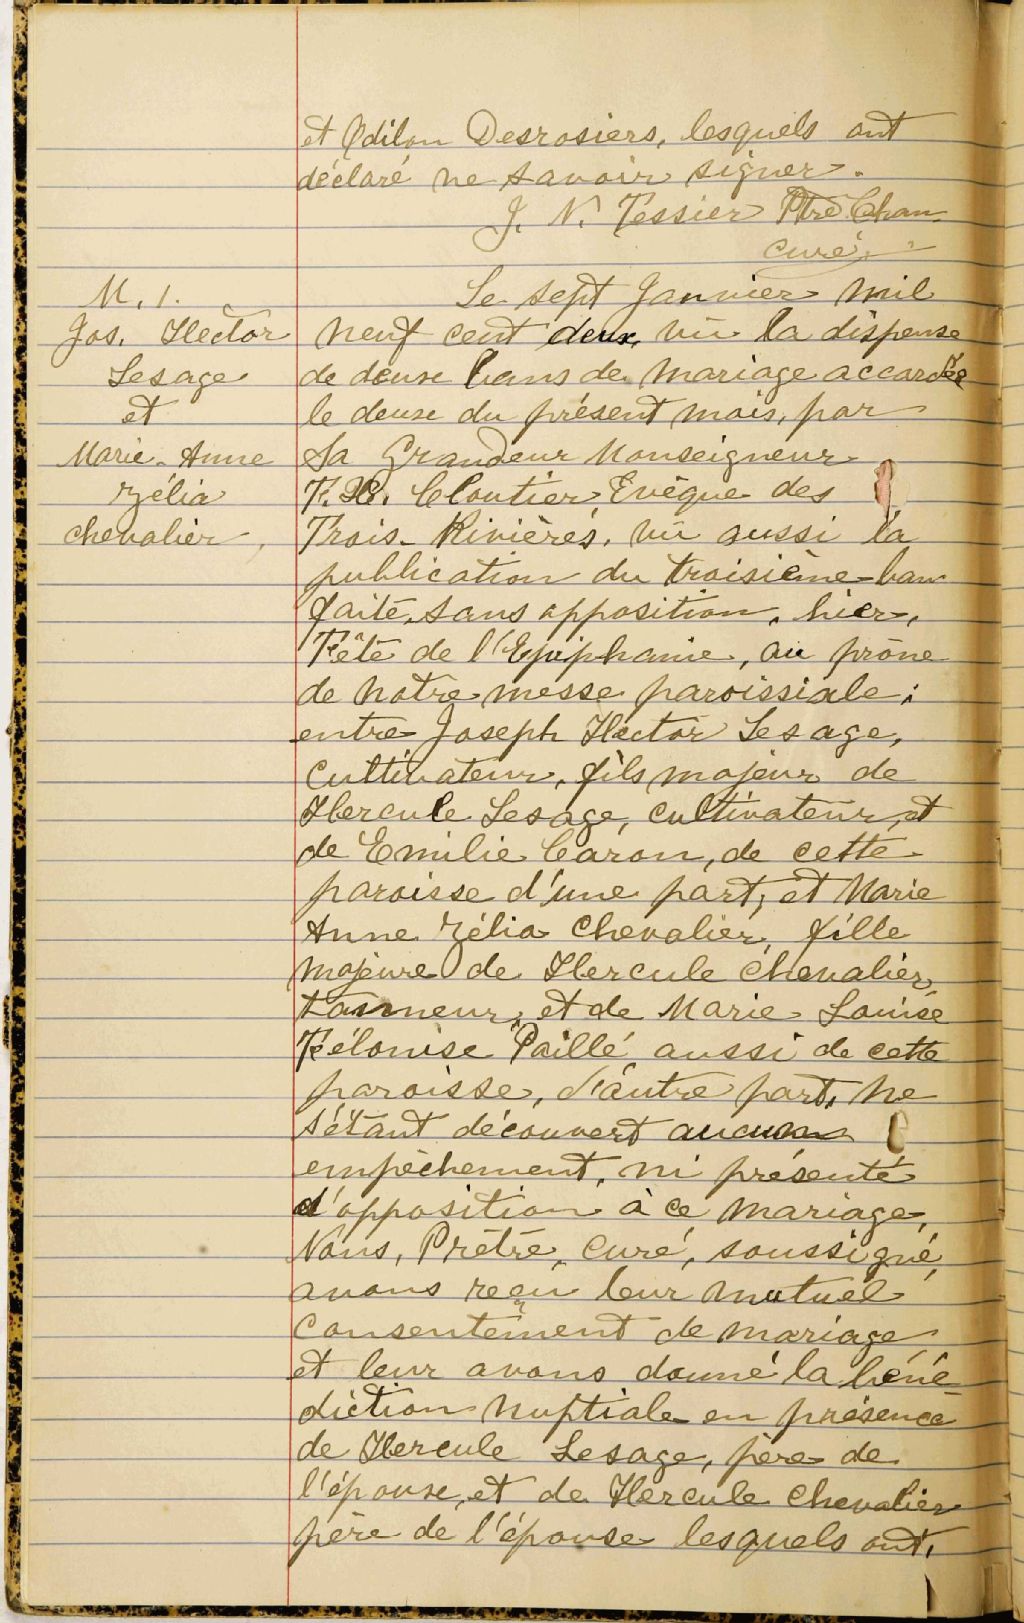 et Odilon Desrosiers, lesquels ont
déclaré ne savoir signer.
J. N. Tessier Ptre Chan-
curé.
M. 1.
Jos. Hector
Lesage
et
Marie-Anne
Zélia
Chevalier,
Le sept Janvier mil
neuf cent deux, vû la dispense
de deux bans de mariage accordée
le deux du présent mois, par
Sa Grandeur Monseigneur
F. X. Cloutier Evêque des
Trois-Rivières, vû aussi la
publication du troisième ban
faite, sans opposition, hier,
Fête de l'Epiphanie, au prône
de notre messe paroissiale;
entre Joseph Hector Lesage,
cultivateur, fils majeur de
Hercule Lesage, cultivateur, et
de Emilie Caron, de cette
paroisse d'une part, et Marie
Anne Zélia Chevalier, fille
majeure de Hercule Chevalier,
tanneur, et de Marie-Louise
Félonise Paillé aussi de cette
paroisse, d'autre part, ne
s'étant découvert aucun
empêchement, ni présenté
d'opposition à ce mariage,
Nous, Prêtre, Curé, soussigné,
avons reçu leur mutuel
consentement de mariage
et leur avons donné la béné-
diction nuptiale en présence
de Hercule Lesage, père de
l'épouse, et de Hercule Chevalier
père de l'épouse lesquels ont,